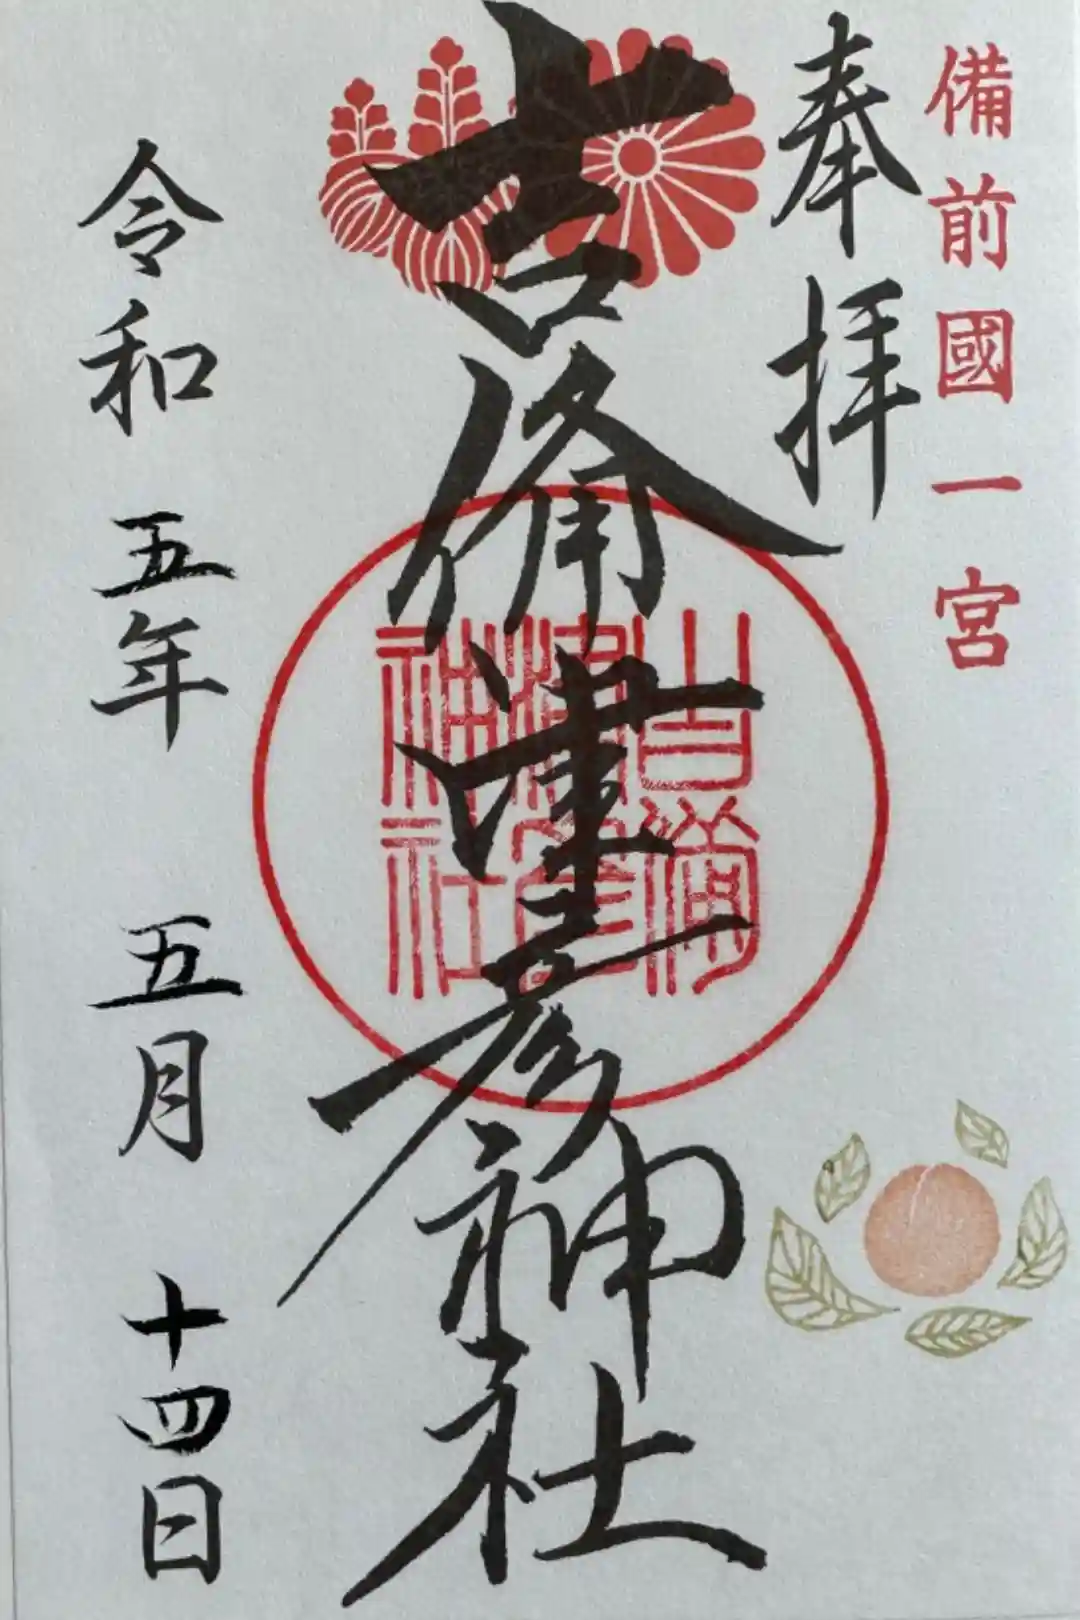 備前國一宮
奉拝
吉備津彦神社
吉備
津彦
神社
令和五年五月十四日